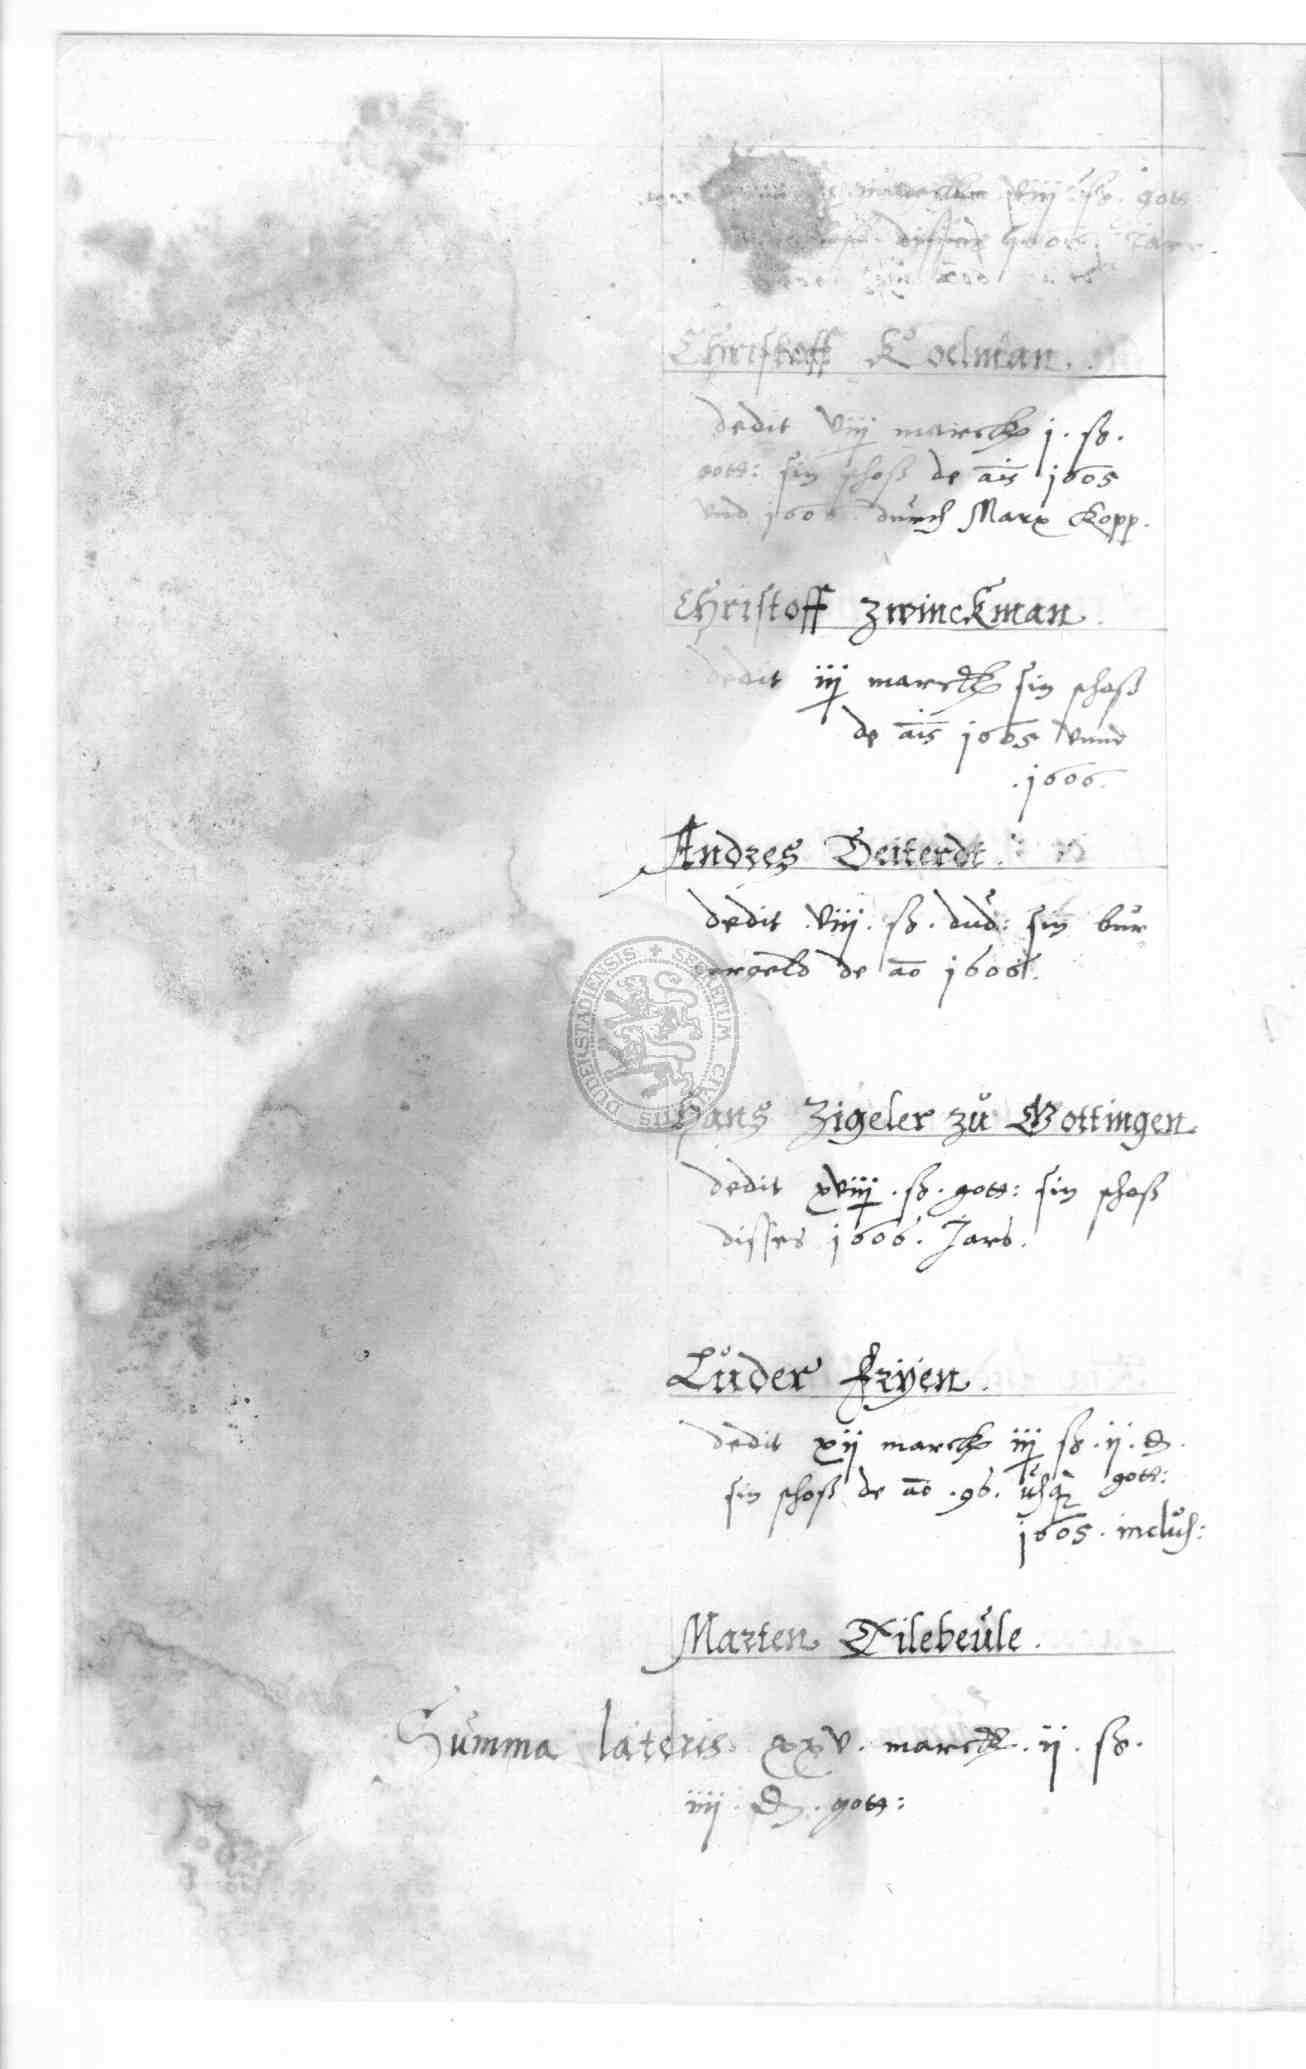 viij ß. gott
disses 1606. Jars
Christoff Koelman.
dedit viij marck j. ß.
gott: sin schoß de ais 1605
vnd 1606. durch Marx Kopp.
Christoff Zwinckman.
dedit iij marck sin schoß
de ais 1605 vnnd
.1606.
Andres Deiterdt.
dedit .viij. ß. dud: sin bur
gergeld de ao 1606.
SECRETUM CIVITATIS DUDERSTADIENSIS
Hans Zigeler zů Gottingen
dedit xviij. ß. gott: sin schoß
disses 1606. Jars.
Lůder Fryen.
dedit xij marck iij ß. ij. ₰.
gott:
sin schoß de ao .96. usq
1605. inclus:
Marten Tilebeůle.
Summa lateris xxv. marck. ij. ß.
iiij. ₰. gott: